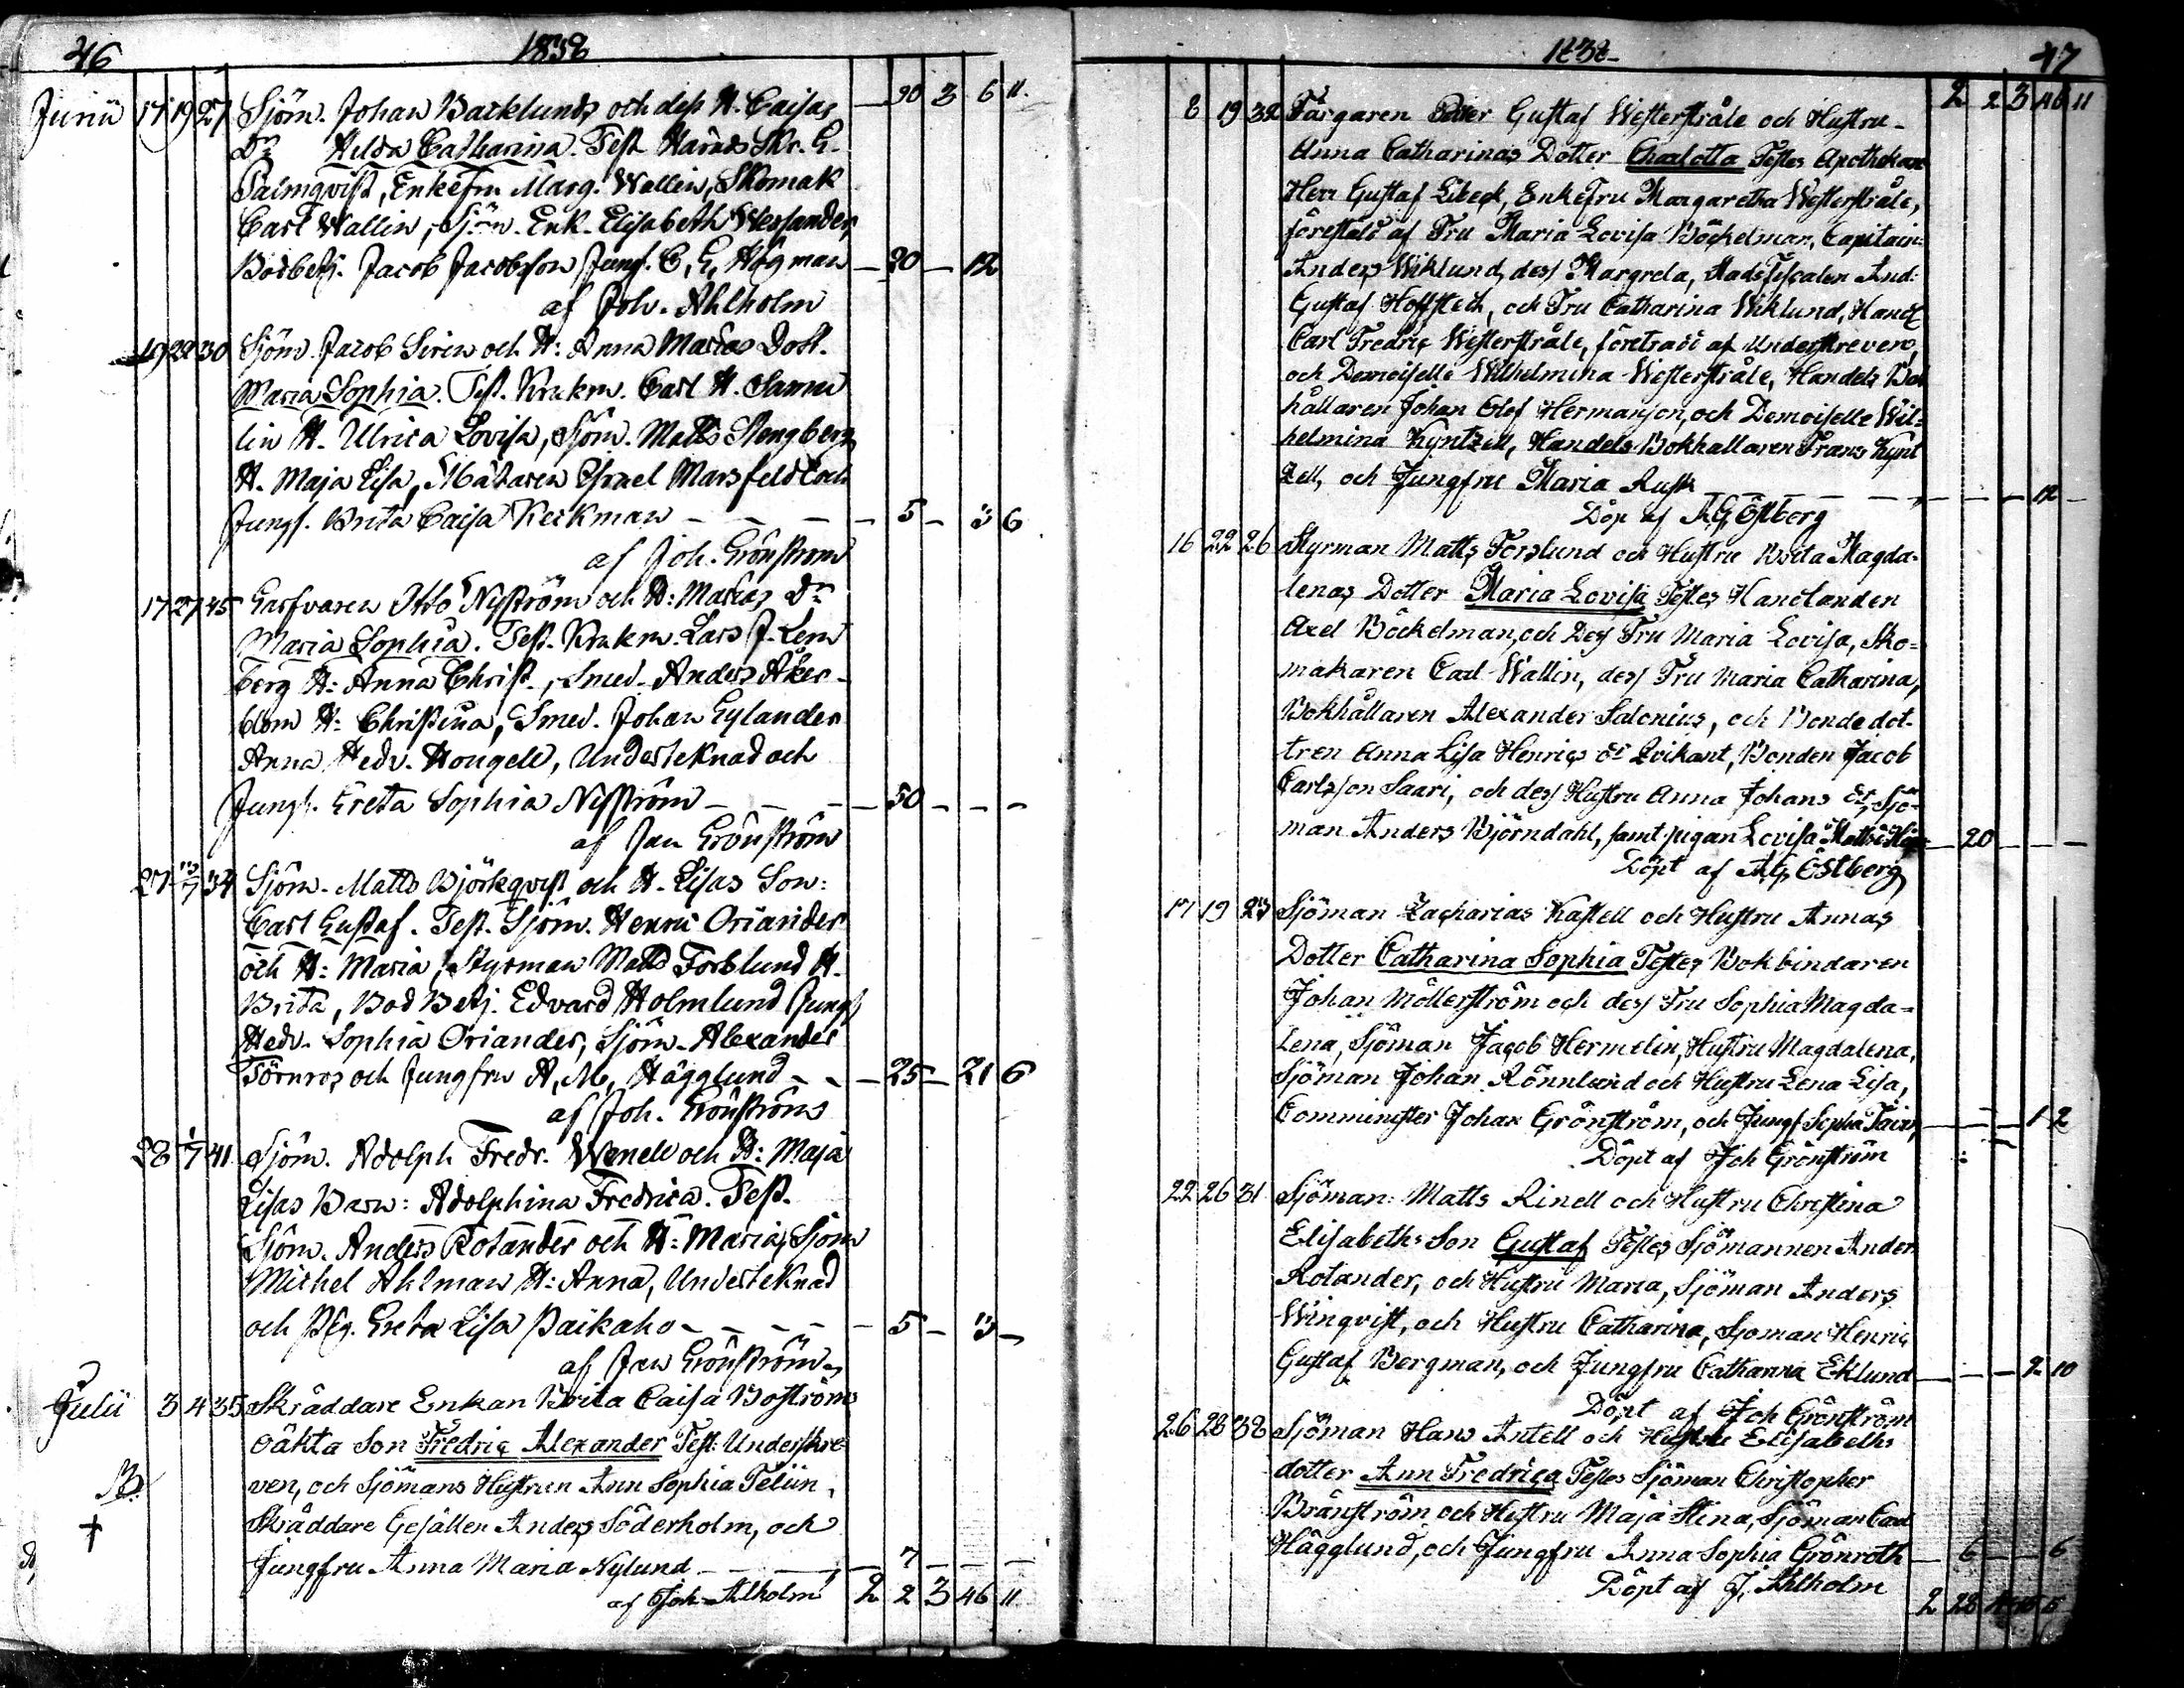 46 1838
Junii 17 19 27 Sjöm. Johan Backlunds och dess H. Caisas — 90 3 6 11.
Dr Hilda Catharina. Test. Härads Skr. G.
Palmqvist, Enkefru Marg. Wallin, Skomak
Carl Wallin, Sjöm. Enk. Elisabeth Wessander,
Bodbetj. Jacob Jacobsson Jungf. C, G, Högman — 20 — 12
af Joh. Ahlholm
19 22 30 Sjöm. Jacob Siren och H: Anna Marias Dott.
Maria Sophia. Test. Krukm. Carl H. Samu
lin H. Ulrica Lovisa, Sjöm. Matts Stengberg
H. Maja Lisa, Mätaren Israel Marsfeldt och
Jungf. Brita Caisa Keckman — — — 5 — 3 6
af Joh. Grönström
17 27 45 Garfvaren Otto Nyström och H: Marias Dr
Maria Sophia. Test. Krukm. Lars J. Lem
berg H: Anna Christ., Smed. Anders Åker-
blom H: Christina, Smed. Johan Gylander
Anna Hedv. Hougell, Underteknad och
Jungf. Greta Sophia Nyström — — — 50 — — —
af Jan Grönström
27 3/7 34 Sjöm. Matts Björkqvist och H. Lisas Son:
Carl Gustaf. Test. Sjöm. Henric Oriander
och H: Maria, Styrman Matts Forslund H.
Brita, Bod Betj. Edvard Holmlund Jungf
Hedv. Sophia Oriander, Sjöm. Alexander
Törnros och Jungfru A, M, Hägglund — — 25 — 21 6
af Joh. Grönström
28 1/7 41 Sjöm. Adolph Fredr. Wenell och H: Maja
Lisas Barn: Adolphina Fredrica. Test.
Sjöm. Anders Rotander och H: Maria, Sjöm
Michel Ahlman H: Anna, Undertecknad
och Pig. Greta Lisa Paikaho — — — — 5 — 3 —
af Jan Grönström
Julii 3 4 35 Skräddare Enkan Brita Caisa Boströms
oäkta Son Fredric Alexander Test: Underskre
ven, och Sjömans Hustrun Ann Sophia Telün,
Skräddare Gesällen Anders Söderholm, och
Jungfru Anna Maria Nylund — — — 7 — — —
af Joh. Ahlholm 2 2 3 46 11
1838 47
8 19 32 Färgaren Petter Gustaf Westerstråle och Hustru 2 2 3 46 11
Anna Catharinas Dotter Charlotta Testes Apothekare
Herr Gustaf Libeck, Enkefru Margaretha Westerstråle,
förestäld af Fru Maria Lovisa Böckelman, Capitain
Anders Wiklund, dess Margreta, Stads Fiscalen And:
Gustaf Hoffstedt, och Fru Catharina Wiklund, Handl
Carl Fredric Westerstråle, företrädd af Underskreven,
och Demoiselle Wilhelmina Westerstråle, Handels Bok
hållaren Johan Olof Hermanson, och Demoiselle Wil=
helmina Kyntzell, Handels Bokhållaren Frans Kynt
zell, och Jungfru Maria Rusk — — — 12 —
Döp af A G Östberg
16 22 26 Styrman Matts Forslund och Hustru Brita Magda-
lenas Dotter Maria Lovisa Testes Handlanden
Axel Böckelman, och Dess Fru Maria Lovisa, Sko=
makaren Carl Wallin, dess Fru Maria Catharina,
Bokhållaren Alexander Salonius, och Bondedot-
tren Anna Lisa Henrics dr Qvikant, Bonden Jacob
Carlsson Saari, och dess Hustru Anna Johans dr, Sjö-
man Anders Björndahl, samt pigan Lovisa — 20 — — —
Döpt af A G Östberg
17 19 23 Sjöman Zacharias Kastell och Hustru Annas
Dotter Catharina Sophia Testes Bokbindaren
Johan Möllerström och dess Fru Sophia Magda=
lena, Sjöman Jacob Hermelin, Hustru Magdalena,
Sjöman Johan Rönnlund och Hustru Lena Lisa,
Comminister Johan Grönström, och Jungf Sophia — — — 1 2
Döpt af Joh Grönström
22 26 31 Sjöman: Matts Rinell och Hustru Christina
Elisabeths Son Gustaf Testes Sjömannen Anders
Rotander, och Hustru Maria, Sjöman Anders
Winqvist, och Hustru Catharina, Sjöman Henric
Gustaf Bergman, och Jungfru Catharina Eklund — — — 2 10
Döpt af Joh Grönström
26 28 38 Sjöman Hans Antell och Hustru Elisabeths
dotter Ann Fredrica Testes Sjöman Christopher
Bränström och Hustru Maja Stina, Sjöman Carl
Hägglund, och Jungfru Anna Sophia Grönroth — 6 — — 6
Döpt af J. Ahlholm
2 28